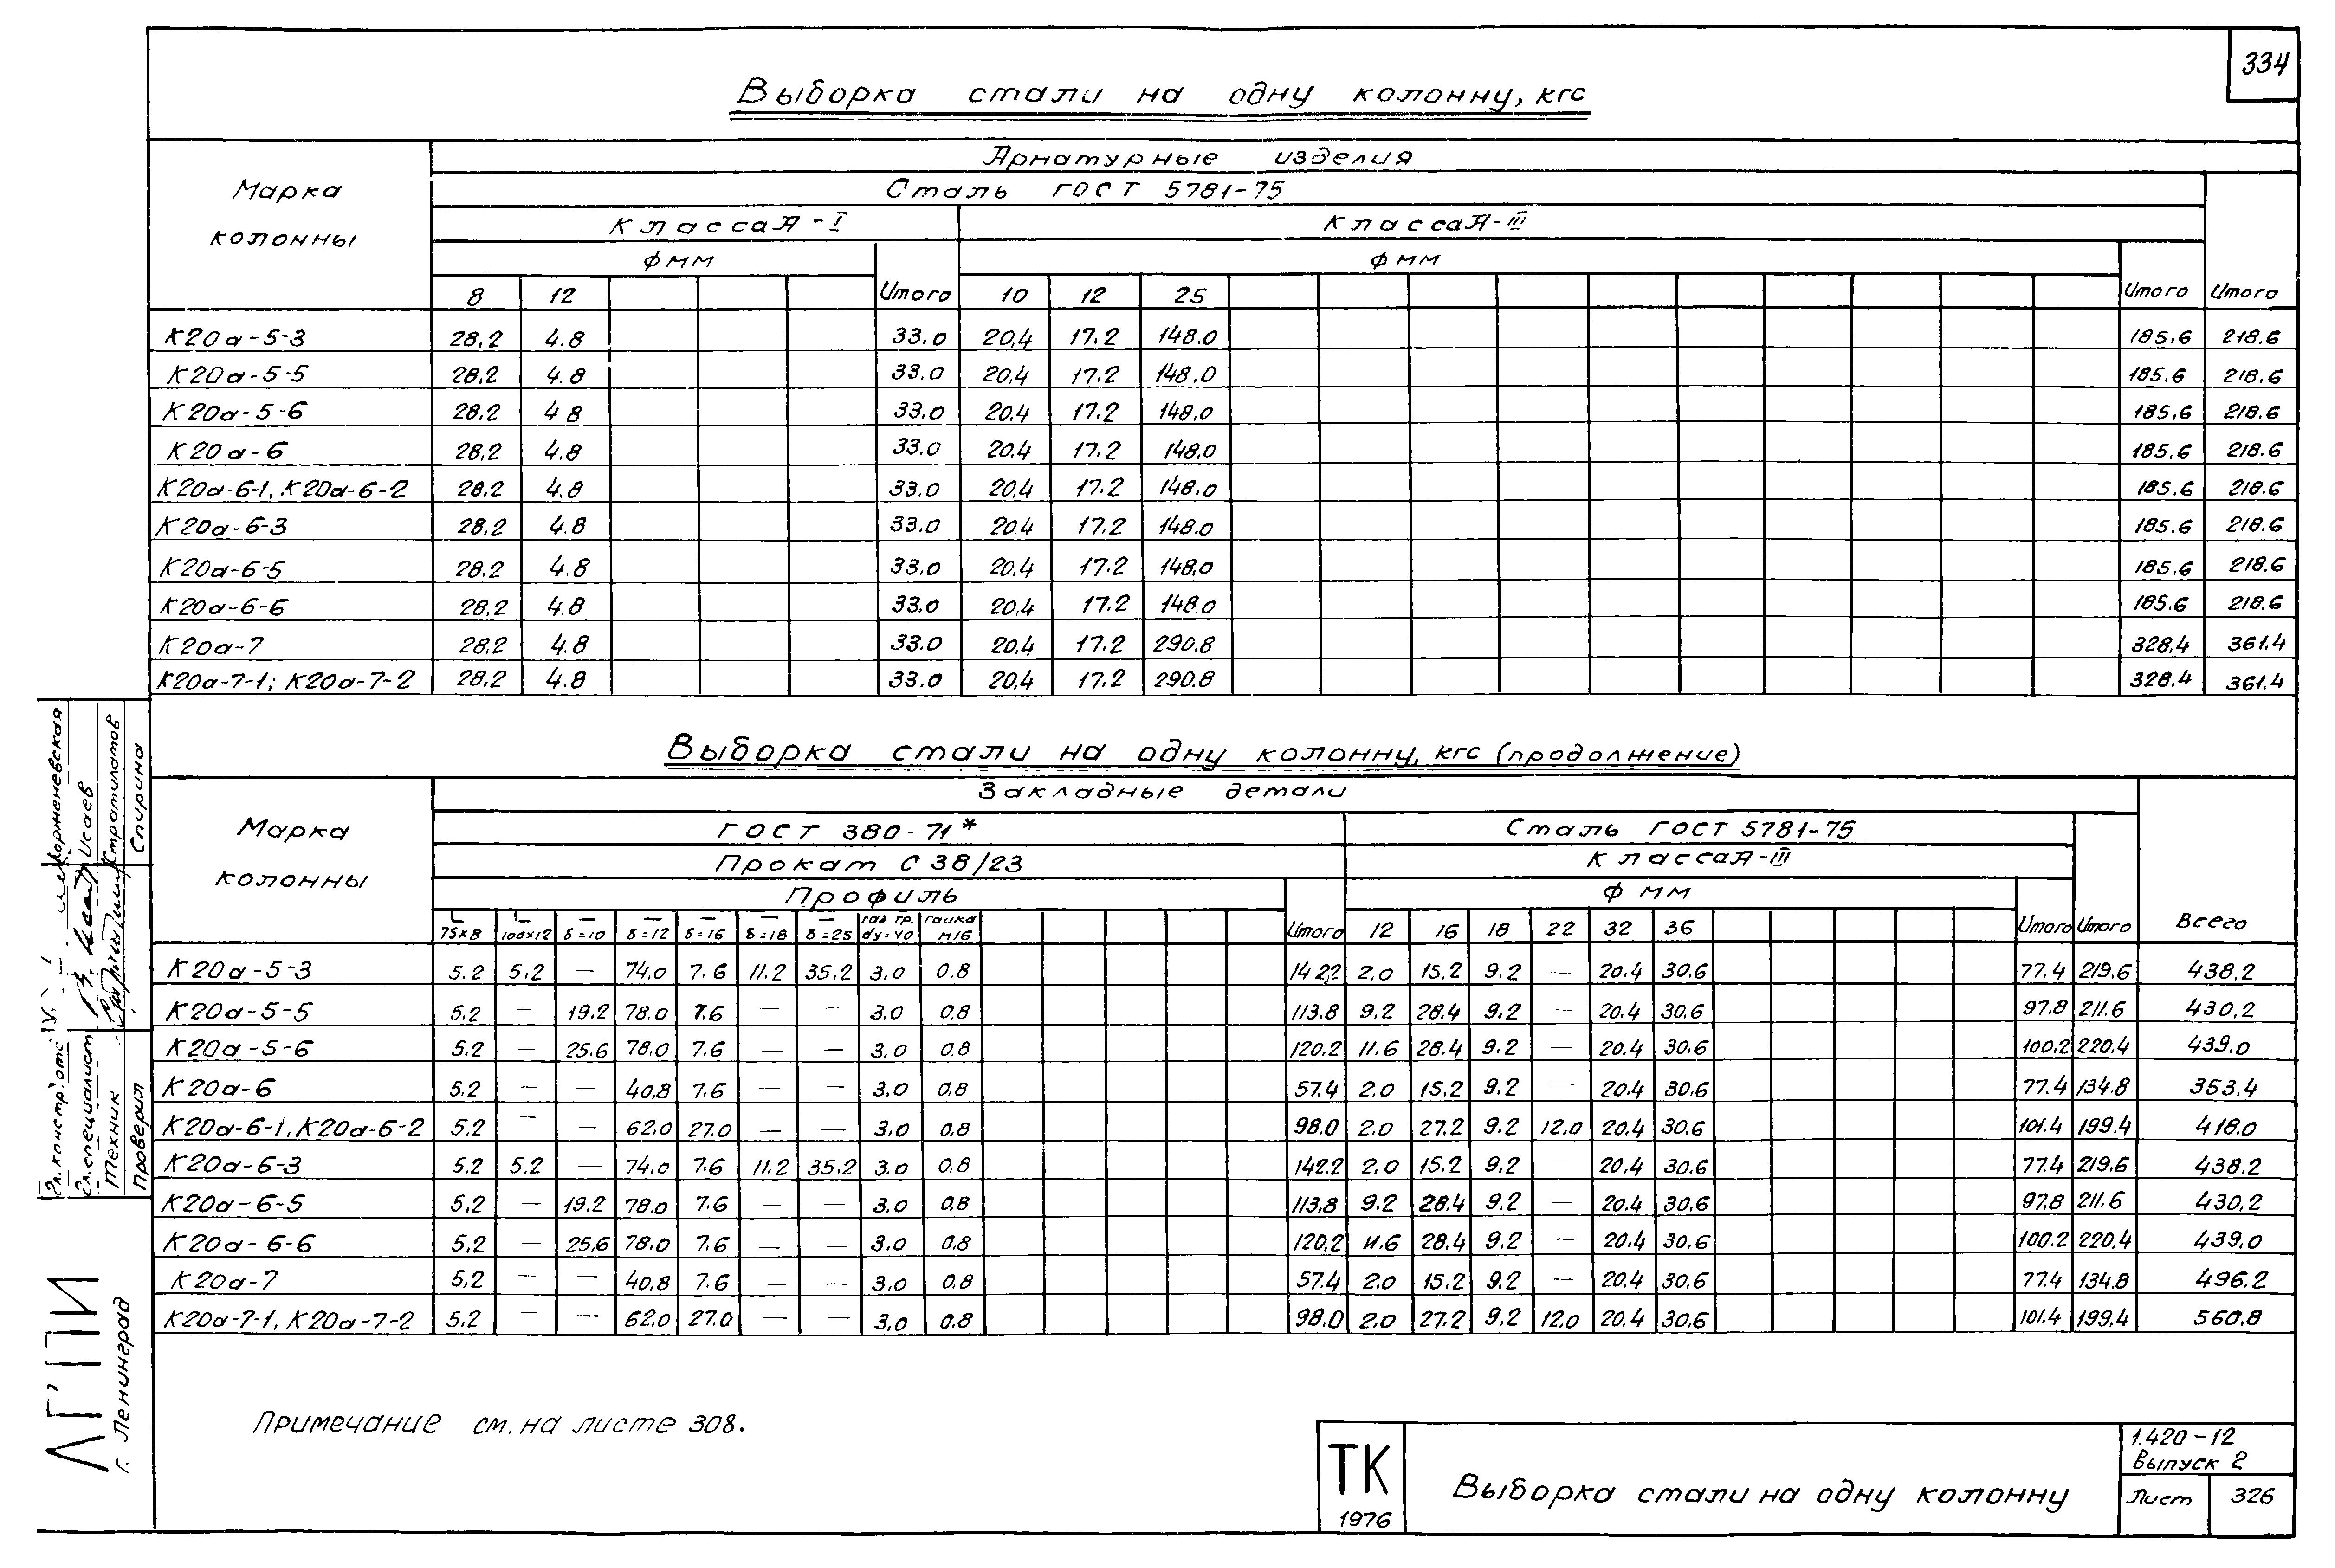 334
Выборка стали на одну колонну, кгс
Марка колонны
Арматурные изделия
Сталь ГОСТ 5781-75
Класса А-I Класса А-III
Ф мм Ф мм
8 12 Итого 10 12 25 Итого Итого
К20а-5-3 28,2 4.8 33.0 20,4 17.2 148.0 185.6 218.6
К20а-5-5 28,2 4.8 33.0 20,4 17.2 148.0 185.6 218.6
К20а-5-6 28,2 4 8 33.0 20,4 17.2 148,0 185,6 218.6
К20а-6 28,2 4.8 33.0 20,4 17.2 148.0 185.6 218.6
К20а-6-1, К20а-6-2 28.2 4.8 33.0 20.4 17.2 148.0 185.6 218.6
К20а-6-3 28.2 4.8 33.0 20.4 17.2 148.0 185.6 218.6
К20а-6-5 28.2 4.8 33.0 20.4 17.2 148.0 185.6 218.6
К20а-6-6 28,2 4.8 33.0 20,4 17.2 148.0 185.6 218.6
К20а-7 28.2 4.8 33.0 20.4 17.2 290.8 328.4 361.4
К20а-7-1; К20а-7-2 28,2 4.8 33.0 20,4 17.2 290.8 328.4 361.4
Выборка стали на одну колонну, кгс (продолжение)
Марка колонны
Закладные детали
ГОСТ 380-71* Сталь ГОСТ 5781-75
Прокат С 38/23 Класса А-III
Профиль Ф мм
∟ ∟ — — — — — газ тр. гайка
75×8 100×12 δ=10 δ=12 δ=16 δ=18 δ=25 dу=40 М16 Итого 12 16 18 22 32 36 Итого Итого Всего
К20а-5-3 5.2 5,2 — 74.0 7.6 11.2 35.2 3.0 0.8 142,2 2.0 15.2 9.2 — 20.4 30.6 77.4 219.6 438.2
К20а-5-5 5,2 — 19.2 78.0 7.6 — — 3.0 0.8 113.8 9.2 28.4 9.2 — 20.4 30.6 97.8 211.6 430,2
К20а-5-6 5.2 — 25.6 78.0 7.6 — — 3,0 0.8 120.2 11.6 28.4 9.2 — 20.4 30.6 100.2 220.4 439.0
К20а-6 5.2 — — 40,8 7.6 — — 3.0 0.8 57.4 2.0 15.2 9.2 — 20.4 30.6 77.4 134.8 353.4
К20а-6-1, К20а-6-2 5.2 — — 62.0 27.0 — — 3.0 0.8 98.0 2.0 27.2 9.2 12.0 20.4 30.6 101.4 199.4 418.0
К20а-6-3 5.2 5.2 — 74.0 7.6 11.2 35.2 3.0 0.8 142.2 2.0 15.2 9.2 — 20.4 30.6 77.4 219.6 438.2
К20а-6-5 5.2 — 19.2 78.0 7.6 — — 3.0 0.8 113.8 9.2 28.4 9.2 — 20.4 30.6 97.8 211.6 430,2
К20а-6-6 5.2 — 25.6 78.0 7.6 — — 3.0 0.8 120.2 11.6 28.4 9.2 — 20.4 30.6 100.2 220.4 439.0
К20а-7 5.2 — — 40,8 7.6 — — 3.0 0.8 57.4 2.0 15.2 9.2 — 20.4 30.6 77.4 134.8 496.2
К20а-7-1, К20а-7-2 5.2 — — 62.0 27.0 — — 3,0 0.8 98.0 2.0 27.2 9.2 12.0 20.4 30.6 101.4 199.4 560.8
Примечание см. на листе 308.
ТК
1976
Выборка стали на одну колонну
1.420-12
Выпуск 2
Лист 326
Гл. констр. отд. Корженевская
Гл. специалист Исаев
Техник Стратилатов
Проверил Спирина
ЛГПИ
г. Ленинград